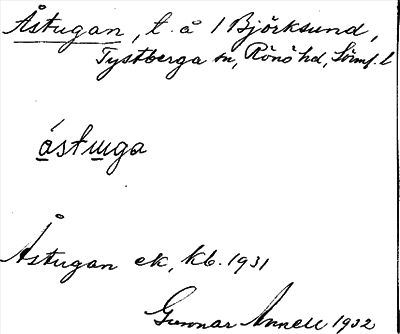 Åstugan, t. å 1 Björksund,
Tystberga sn, Rönö hd, Sörml. l
åstuga
Åstugan ek, Kb. 1931
Gunnar Annell 1932